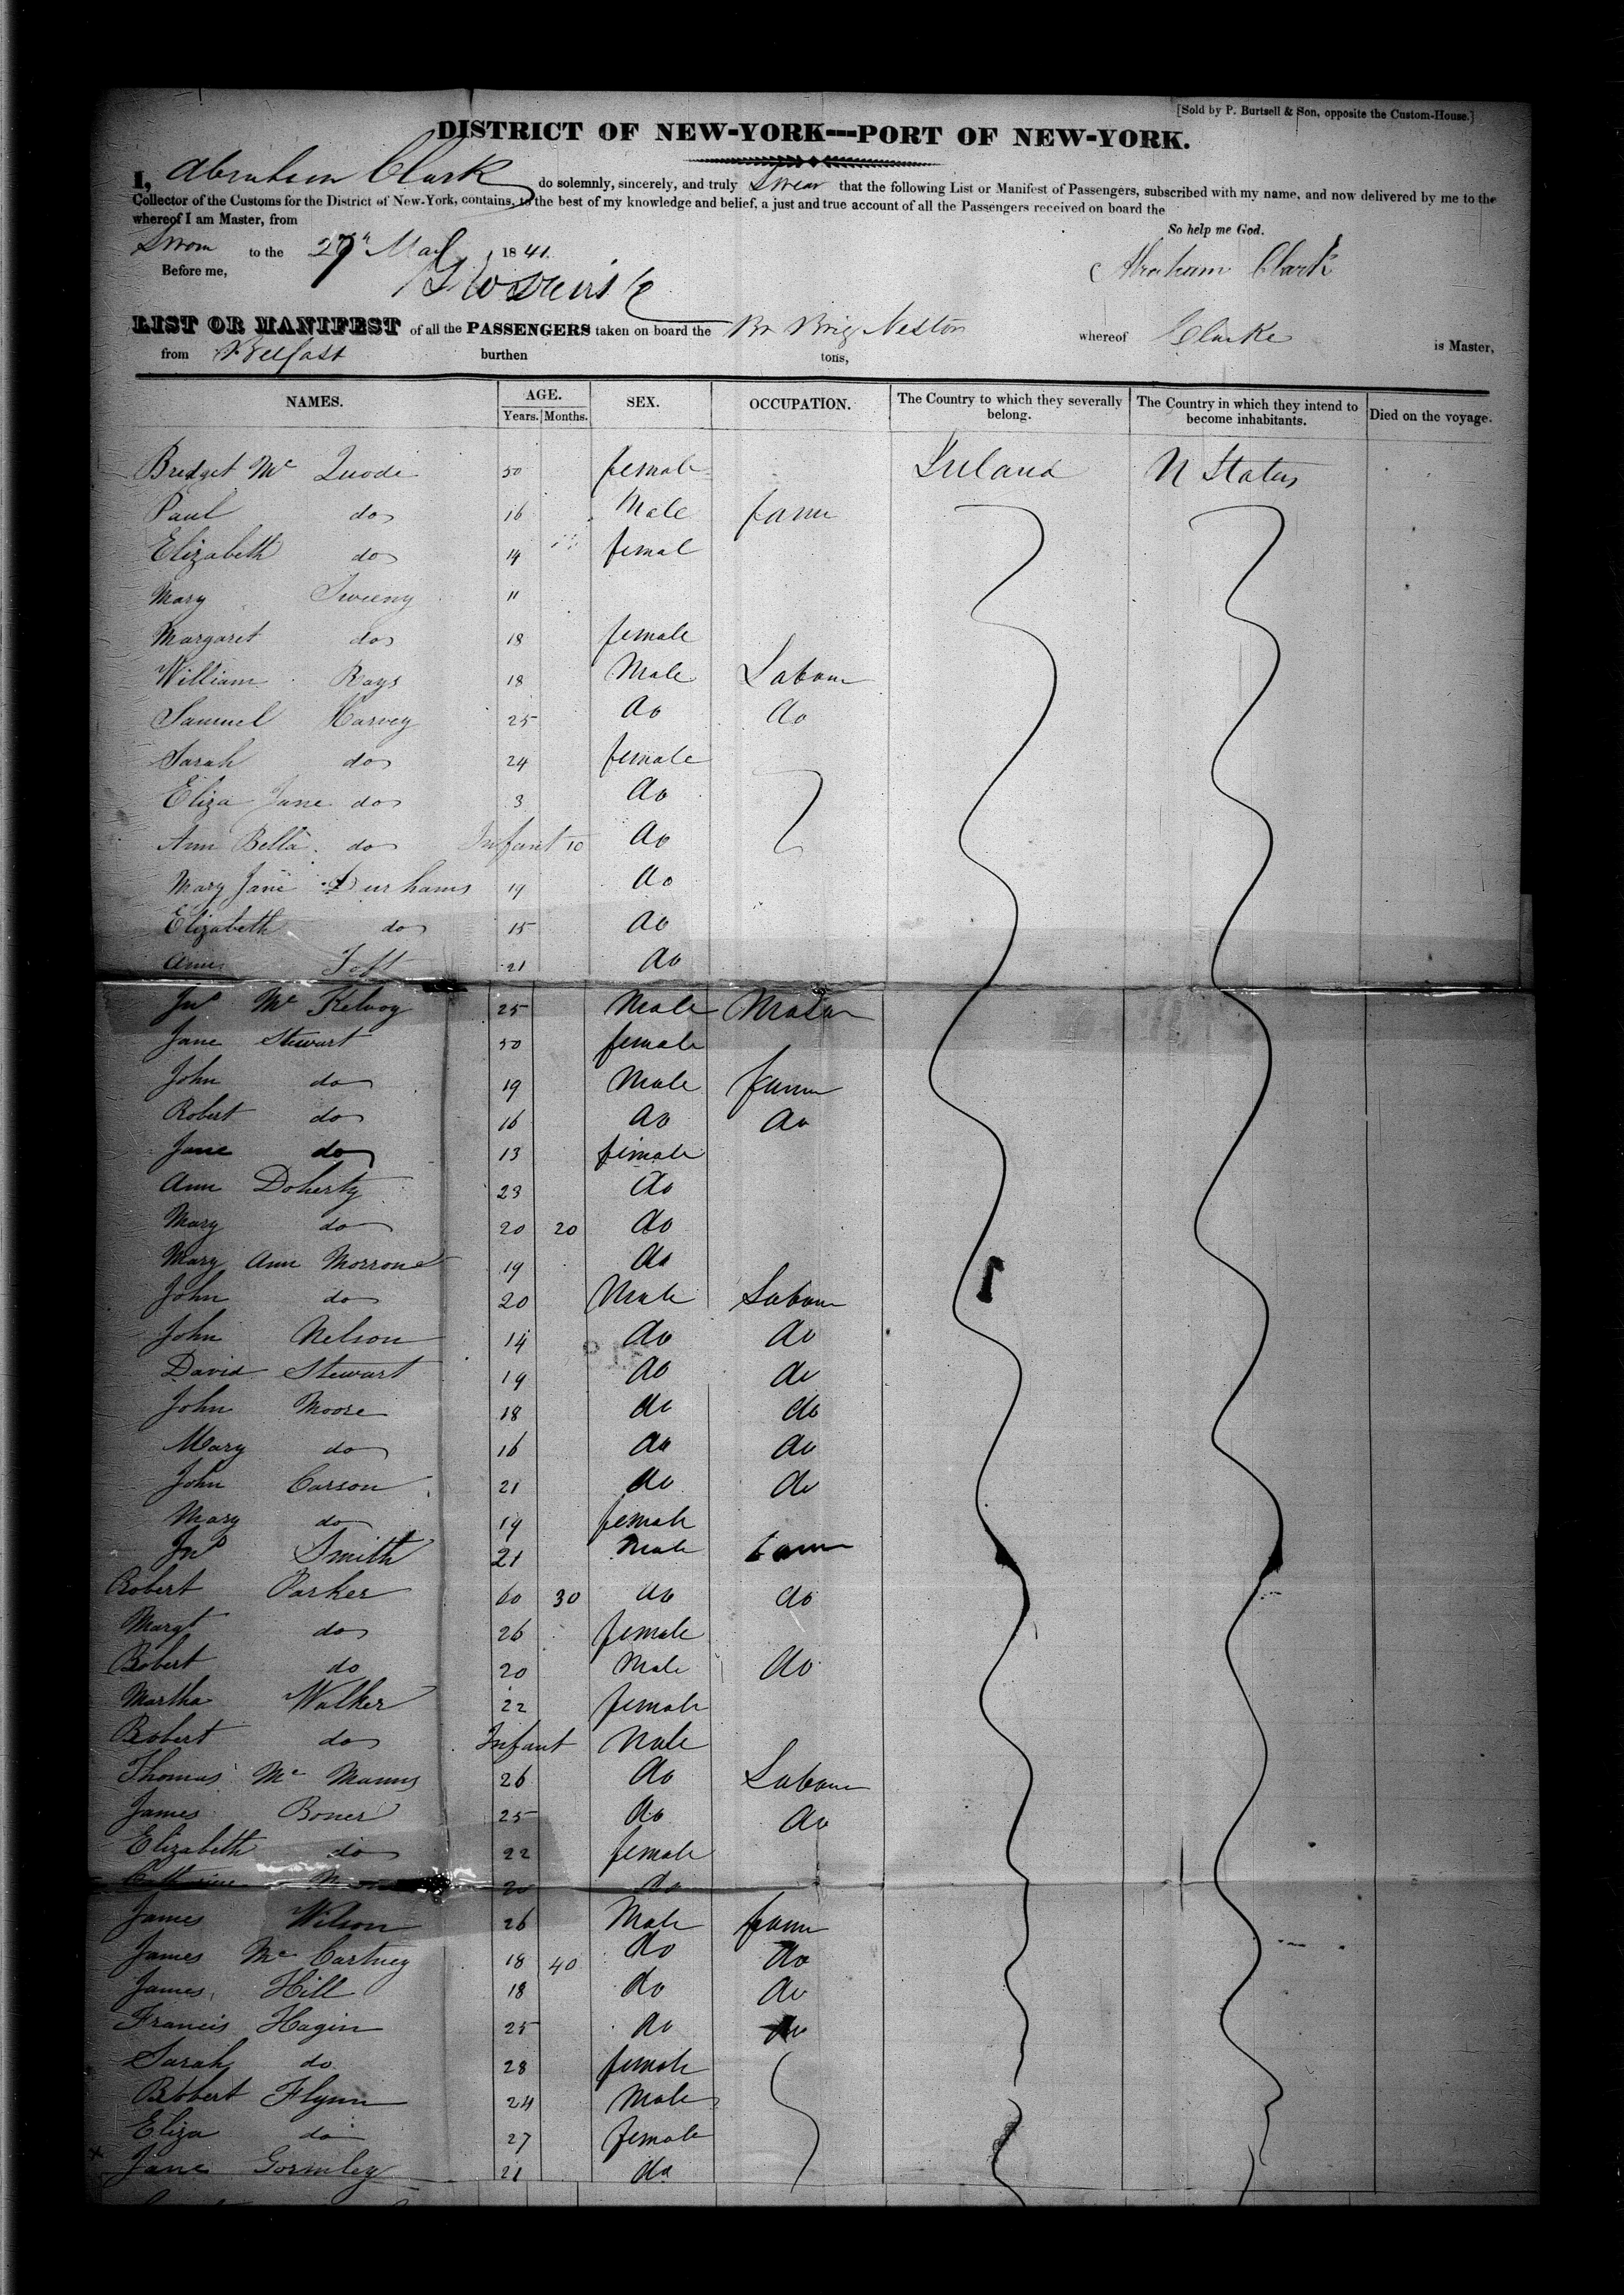 [Sold by P. Burtsell & Son, opposite the Custom-House.]
DISTRICT OF NEW-YORK---PORT OF NEW-YORK.
I, Abraham Clark do solemnly, sincerely, and truly Swear that the following List or Manifest of Passengers, subscribed with my name, and now delivered by me to the
Collector of the Customs for the District of New-York, contains, to the best of my knowledge and belief, a just and true account of all the Passengers received on board the
whereof I am Master, from
So help me God.
Sworn to the 27th May 1841.
Before me,
Abraham Clark
LIST OR MANIFEST of all the PASSENGERS taken on board the Br Brig Neston whereof Clarke is Master,
from Belfast burthen tons,
NAMES. AGE. SEX. OCCUPATION. The Country to which they severally belong. The Country in which they intend to become inhabitants. Died on the voyage.
Years. Months.
Bredget Mc 50 female Ireland U States
Paul do 16 Male farm
Elizabeth do 14 femal
Mary Sweeny 11
Margaret do 18 female
William Rays 18 Male Labour
Samuel Harvey 25 do do
Sarah do 24 female
Eliza Jane do 3 do
Ann Bella do Infant 10 do
Mary Jane Durhams 19 do
Elizabeth do 15 do
Ann Toft 21 do
Jno Mc Kelvoy 25 Male Mason
Jane Stewart 50 female
John do 19 Male farm
Robert do 16 do do
Jane do 13 female
Ann Doherty 23 do
Mary do 20 20 do
Mary Ann Morrone 19 do
John do 20 Male Labour
John Nelson 14 do do
David Stewart 19 do do
John Moore 18 do do
Mary do 16 do do
John Carson 21 do do
Mary do 19 female
Jno Smith 21 Male farm
Robert Parker 60 30 do do
Margt do 26 female
Robert do 20 Male do
Martha Walker 22 female
Robert do Infant Male
Thomas Mc Manus 26 do Labour
James Boner 25 do do
Elizabeth do 22 female
Catherine 20 do
James Wilson 26 Male farm
James Mc Cartney 18 40 do do
James Hill 18 do do
Francis Hagin 25 do do
Sarah do 28 female
Robert Flynn 24 Male
Eliza do 27 female
Jane Gormley 21 do